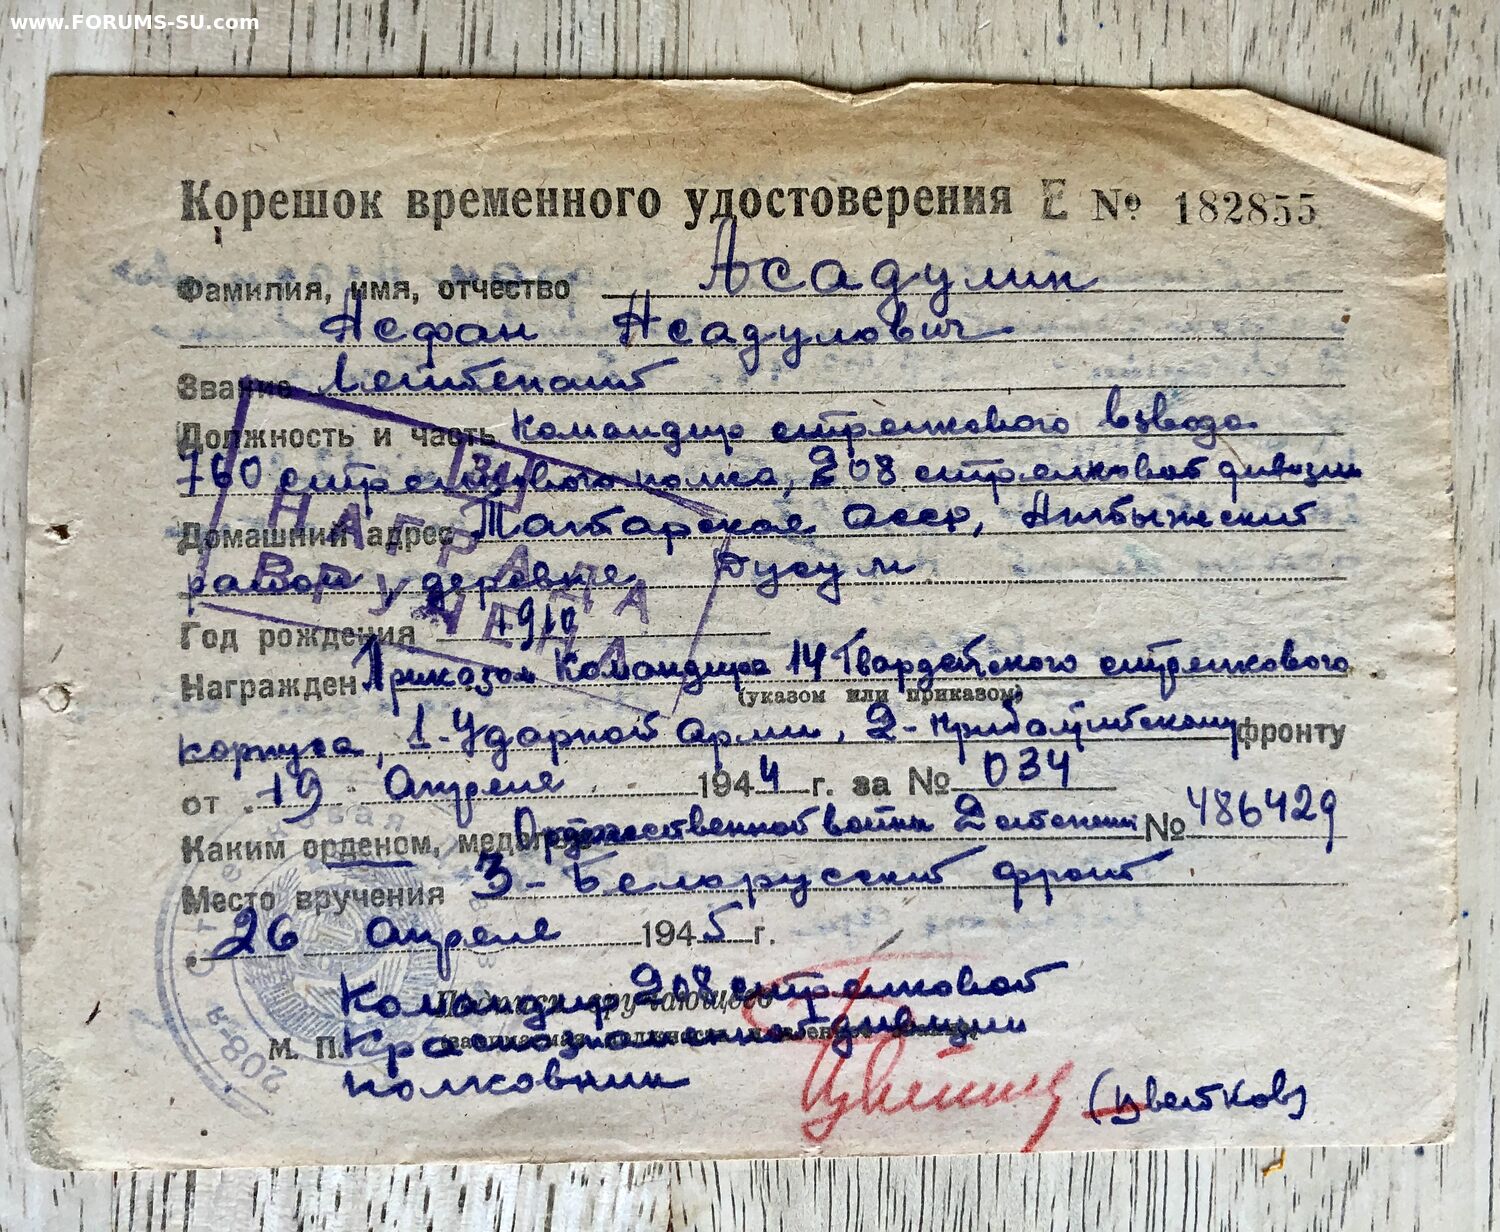 www.FORUMS-SU.com
Корешок временного удостоверения Е № 182855
Фамилия, имя, отчество Асадулин
Асфан Асадулович
Звание Лейтенант
Должность и часть Командир стрелкового взвода
760 стрелкового полка, 208 стрелковой дивизии
Домашний адрес Татарская АССР,
район деревне
Год рождения 1910
Награжден Приказом Командира 14 Гвардейского стрелкового
(указом или приказом)
корпуса, 1-Ударной Армии, 2-Прибалтийскому фронту
от 19 Апреля 1944 г. за № 034
Каким орденом, медалью Отечественной войны 2 степени № 486429
Место вручения 3-Белорусский фронт
26 Апреля 1945 г.
Командир 208 стрелковой
Подпись вручающего
Краснознаменной дивизии
М. П.
полковник
(Цветков)
НАГРАДА
ВРУЧЕНА
208-я